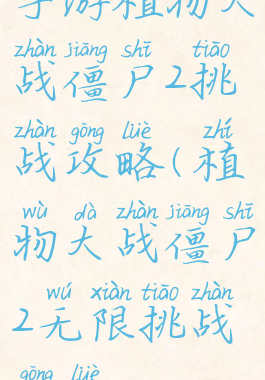 手游植物大
zhàn jiāng shī tiāo
战僵尸2挑
zhàn gōng lüè zhí
战攻略(植
wù dà zhàn jiāng shī
物大战僵尸
wú xiàn tiāo zhàn
2无限挑战
gōng lüè